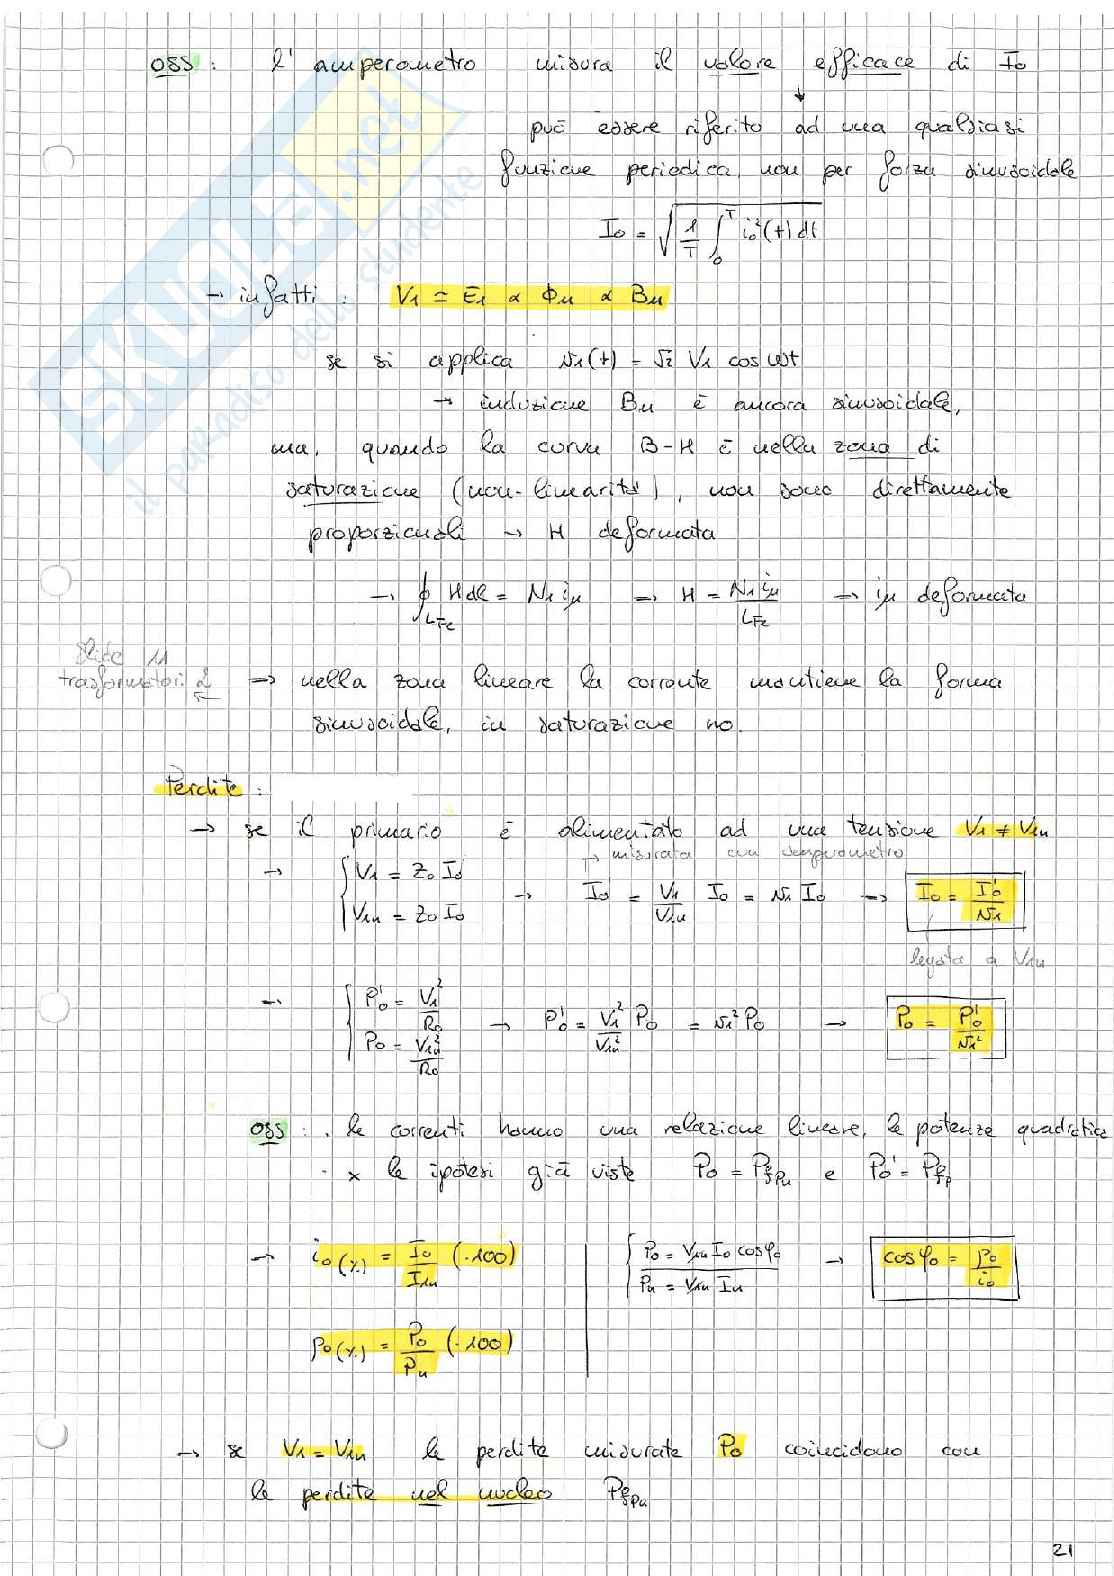 oss: l'amperometro misura il valore efficace di I₀
↓
può essere riferito ad una qualsiasi
funzione periodica, non per forza sinusoidale
I₀ = √(1/T ∫₀ᵀ i₀²(t) dt)
→ infatti: V₁ ≃ E₁ ∝ Φₘ ∝ Bₘ
se si applica v₁(t) = √2 V₁ cos ωt
→ induzione Bₘ è ancora sinusoidale,
ma, quando la curva B-H è nella zona di
saturazione (non-linearità), non sono direttamente
proporzionali → H deformata
→ ∮_LFe H dl = N₁ iμ → H = N₁ iμ / LFe → iμ deformata
slide 11
trasformatori 2 → nella zona lineare la corrente mantiene la forma
sinusoidale, in saturazione no.
Perdite:
→ se il primario è alimentato ad una tensione V₁ ≠ V₁ₙ
→ misurata con amperometro
→ { V₁ = Z₀ I₀' ; V₁ₙ = Z₀ I₀ → I₀' = V₁/V₁ₙ I₀ = v₁ I₀ → I₀ = I₀'/v₁
legata a V₁ₙ
→ { P₀' = V₁²/R₀ ; P₀ = V₁ₙ²/R₀ → P₀' = V₁²/V₁ₙ² P₀ = v₁² P₀ → P₀ = P₀'/v₁²
oss: · le correnti hanno una relazione lineare, le potenze quadratica
· x le ipotesi già viste P₀ = Pfpn e P₀' = Pfp
→ i₀(%) = I₀/I₁ₙ (·100) | { P₀ = V₁ₙ I₀ cosφ₀ / Pₙ = V₁ₙ Iₙ → cosφ₀ = p₀/i₀
p₀(%) = P₀/Pₙ (·100)
→ se V₁ = V₁ₙ le perdite misurate P₀ coincidono con
le perdite nel nucleo Pfpn
21
SKUOLA.net
il paradiso dello studente